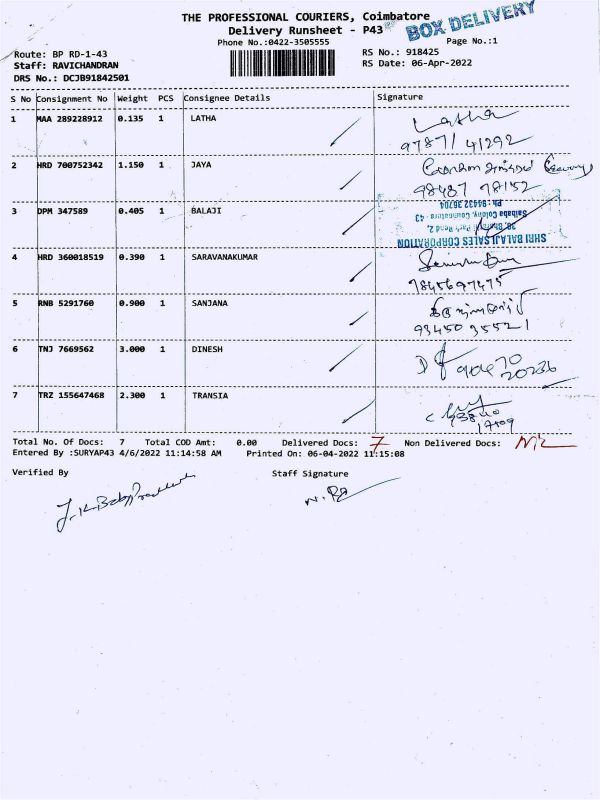 THE PROFESSIONAL COURIERS, Coimbatore
Delivery Runsheet - P43
BOX DELIVERY
Phone No.:0422-3505555
Page No.:1
Route: BP RD-1-43
RS No.: 918425
Staff: RAVICHANDRAN
RS Date: 06-Apr-2022
DRS No.: DCJB91842501
S No Consignment No Weight PCS Consignee Details Signature
1 MAA 289228912 0.135 1 LATHA Latha
9787141292
2 HRD 700752342 1.150 1 JAYA
98487 98152
3 DPM 347589 0.405 1 BALAJI
SHRI BALAJI SALES CORPORATION
Saibaba Colony, Coimbatore - 43
Ph : 94432 36704
4 HRD 360018519 0.390 1 SARAVANAKUMAR
9845697475
5 RNB 5291760 0.900 1 SANJANA
93450 35521
6 TNJ 7669562 3.000 1 DINESH
90470
20236
7 TRZ 155647468 2.300 1 TRANSIA
Total No. Of Docs: 7 Total COD Amt: 0.00 Delivered Docs: 7 Non Delivered Docs: Nil
Entered By :SURYAP43 4/6/2022 11:14:58 AM Printed On: 06-04-2022 11:15:08
Verified By Staff Signature